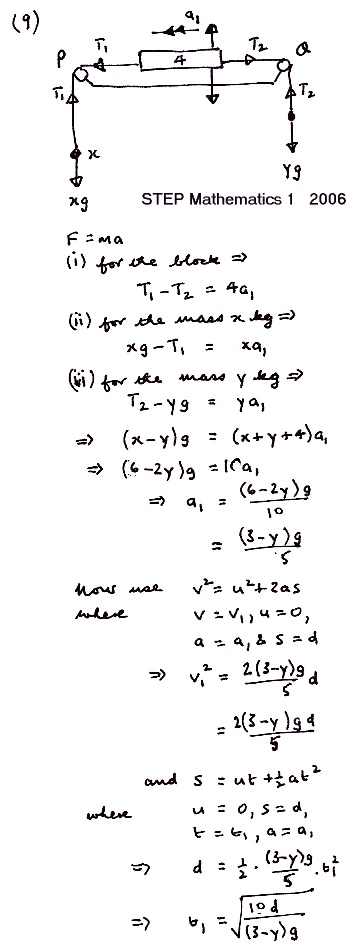 (9)
a₁
P T₁ 4 T₂ Q
T₁ T₂
x
xg yg
STEP Mathematics 1 2006
F = ma
(i) for the block ⇒
T₁ - T₂ = 4a₁
(ii) for the mass x kg ⇒
xg - T₁ = xa₁
(iii) for the mass y kg ⇒
T₂ - yg = ya₁
⇒ (x-y)g = (x+y+4)a₁
⇒ (6-2y)g = 10a₁
⇒ a₁ = (6-2y)g / 10
= (3-y)g / 5
Now use v² = u² + 2as
where v = v₁, u = 0,
a = a₁ & s = d
⇒ v₁² = 2(3-y)g / 5 d
= 2(3-y)gd / 5
and s = ut + ½at²
where u = 0, s = d,
t = t₁, a = a₁
⇒ d = ½ . (3-y)g / 5 . t₁²
⇒ t₁ = √(10d / (3-y)g)